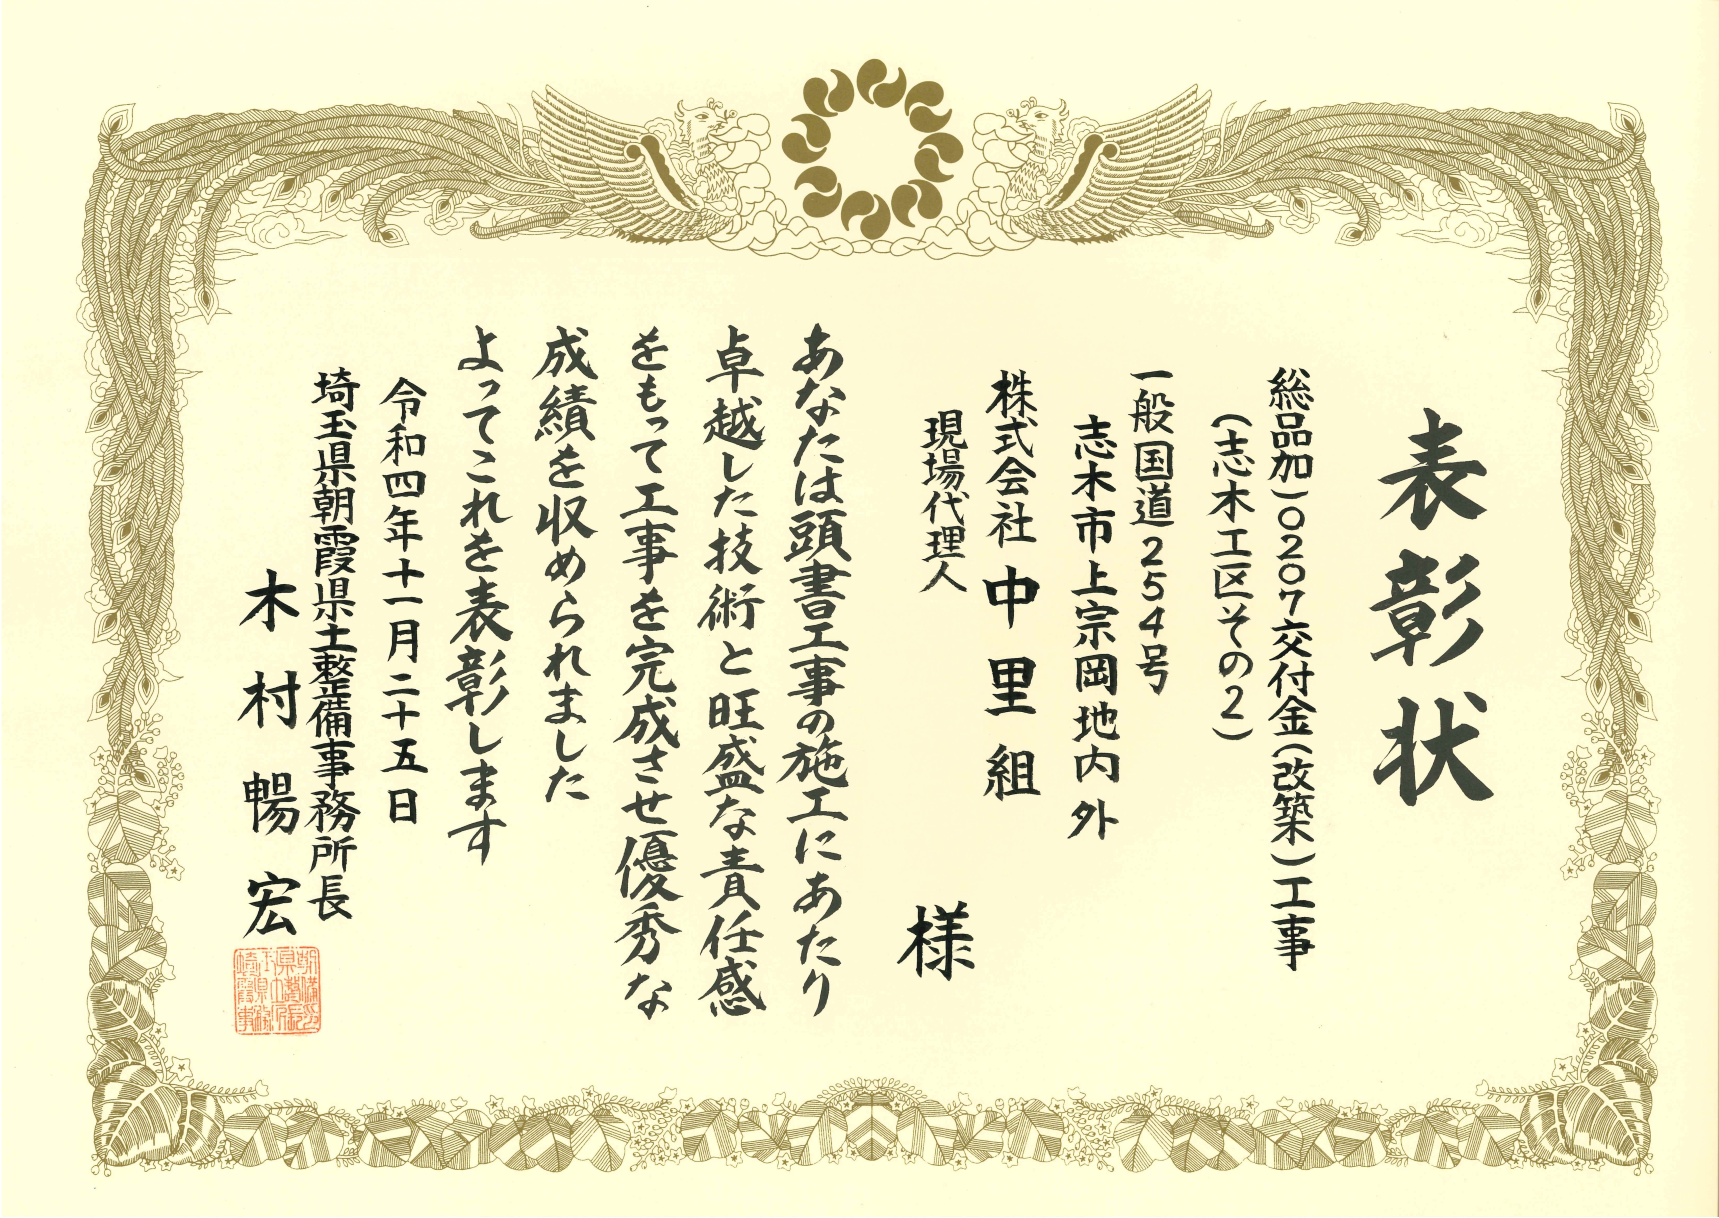 表彰状
総品加)0207交付金(改築)工事
(志木工区その2)
一般国道254号
志木市上宗岡地内外
株式会社中里組
現場代理人
様
あなたは頭書工事の施工にあたり
卓越した技術と旺盛な責任感
をもって工事を完成させ優秀な
成績を収められました
よってこれを表彰します
令和四年十一月二十五日
埼玉県朝霞県土整備事務所長
木村暢宏